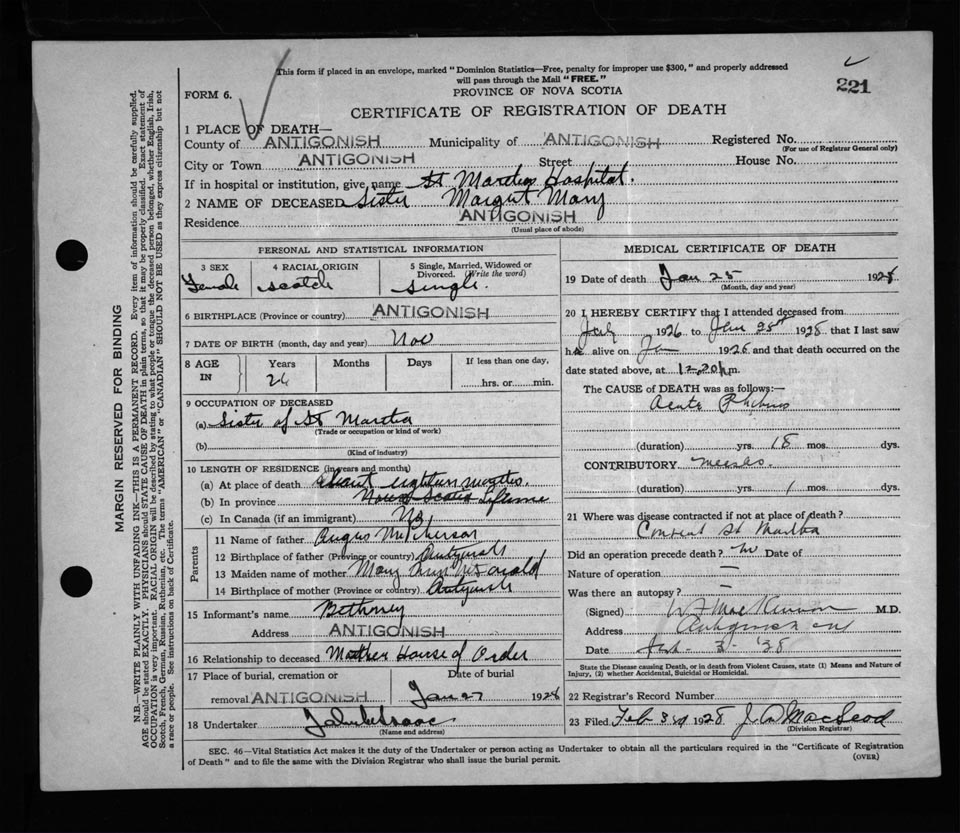 This form if placed in an envelope, marked "Dominion Statistics—Free, penalty for improper use $300," and properly addressed
will pass through the Mail "FREE."
221
FORM 6.
PROVINCE OF NOVA SCOTIA
CERTIFICATE OF REGISTRATION OF DEATH
1 PLACE OF DEATH—
County of ANTIGONISH Municipality of ANTIGONISH Registered No.
(For use of Registrar General only)
City or Town ANTIGONISH Street House No.
If in hospital or institution, give name St Marthas Hospital.
2 NAME OF DECEASED Sister Margret Mary
Residence ANTIGONISH
(Usual place of abode)
PERSONAL AND STATISTICAL INFORMATION
3 SEX Female
4 RACIAL ORIGIN Scotch
5 Single, Married, Widowed or Divorced. (Write the word) Single.
6 BIRTHPLACE (Province or country) ANTIGONISH
7 DATE OF BIRTH (month, day and year) Nov
8 AGE IN Years Months Days If less than one day,
26 hrs. or min.
9 OCCUPATION OF DECEASED
(a) Sister of St Martha
(Trade or occupation or kind of work)
(b)
(Kind of industry)
10 LENGTH OF RESIDENCE (in years and months)
(a) At place of death About eighteen months.
(b) In province Nova Scotia Lifetime
(c) In Canada (if an immigrant)
Parents
11 Name of father Angus McPherson
12 Birthplace of father (Province or country) Antigonish
13 Maiden name of mother Mary McDonald
14 Birthplace of mother (Province or country) Antigonish
15 Informant's name Bethany
Address ANTIGONISH
16 Relationship to deceased Mother House of Order
17 Place of burial, cremation or Date of burial
removal ANTIGONISH Jan 27 1928
18 Undertaker
(Name and address)
MEDICAL CERTIFICATE OF DEATH
19 Date of death Jan 25 1928
(Month, day and year)
20 I HEREBY CERTIFY that I attended deceased from
July 1926 to Jan 25th 1928 that I last saw
her alive on Jan 1928 and that death occurred on the
date stated above, at 12.20 p.m.
The CAUSE OF DEATH was as follows:—
Acute Phthisis
(duration) yrs. 18 mos. dys.
CONTRIBUTORY measles.
(duration) yrs. 1 mos. dys.
21 Where was disease contracted if not at place of death?
Convent St Martha
Did an operation precede death? no Date of
Nature of operation —
Was there an autopsy? —
(Signed) W F MacKinnon M.D.
Address Antigonish
Date Feb - 3 - '28
State the Disease causing Death, or in death from Violent Causes, state (1) Means and Nature of
Injury, (2) whether Accidental, Suicidal or Homicidal.
22 Registrar's Record Number
23 Filed Feb 3rd 1928 J. A. MacLeod
(Division Registrar)
SEC. 46—Vital Statistics Act makes it the duty of the Undertaker or person acting as Undertaker to obtain all the particulars required in the "Certificate of Registration
of Death" and to file the same with the Division Registrar who shall issue the burial permit.
(OVER)
MARGIN RESERVED FOR BINDING
N.B.—WRITE PLAINLY WITH UNFADING INK—THIS IS A PERMANENT RECORD. Every item of information should be carefully supplied.
AGE should be stated EXACTLY. PHYSICIANS should STATE CAUSE OF DEATH in plain terms, so that it may be properly classified. Exact statement of
OCCUPATION is very important. RACIAL ORIGIN will be described by stating to what people or tongue the deceased person belonged, whether English, Irish,
Scotch, French, German, Russian, Ruthenian, etc. The terms "AMERICAN" or "CANADIAN" SHOULD NOT BE USED as they express citizenship but not
a race or people. See instructions on back of Certificate.